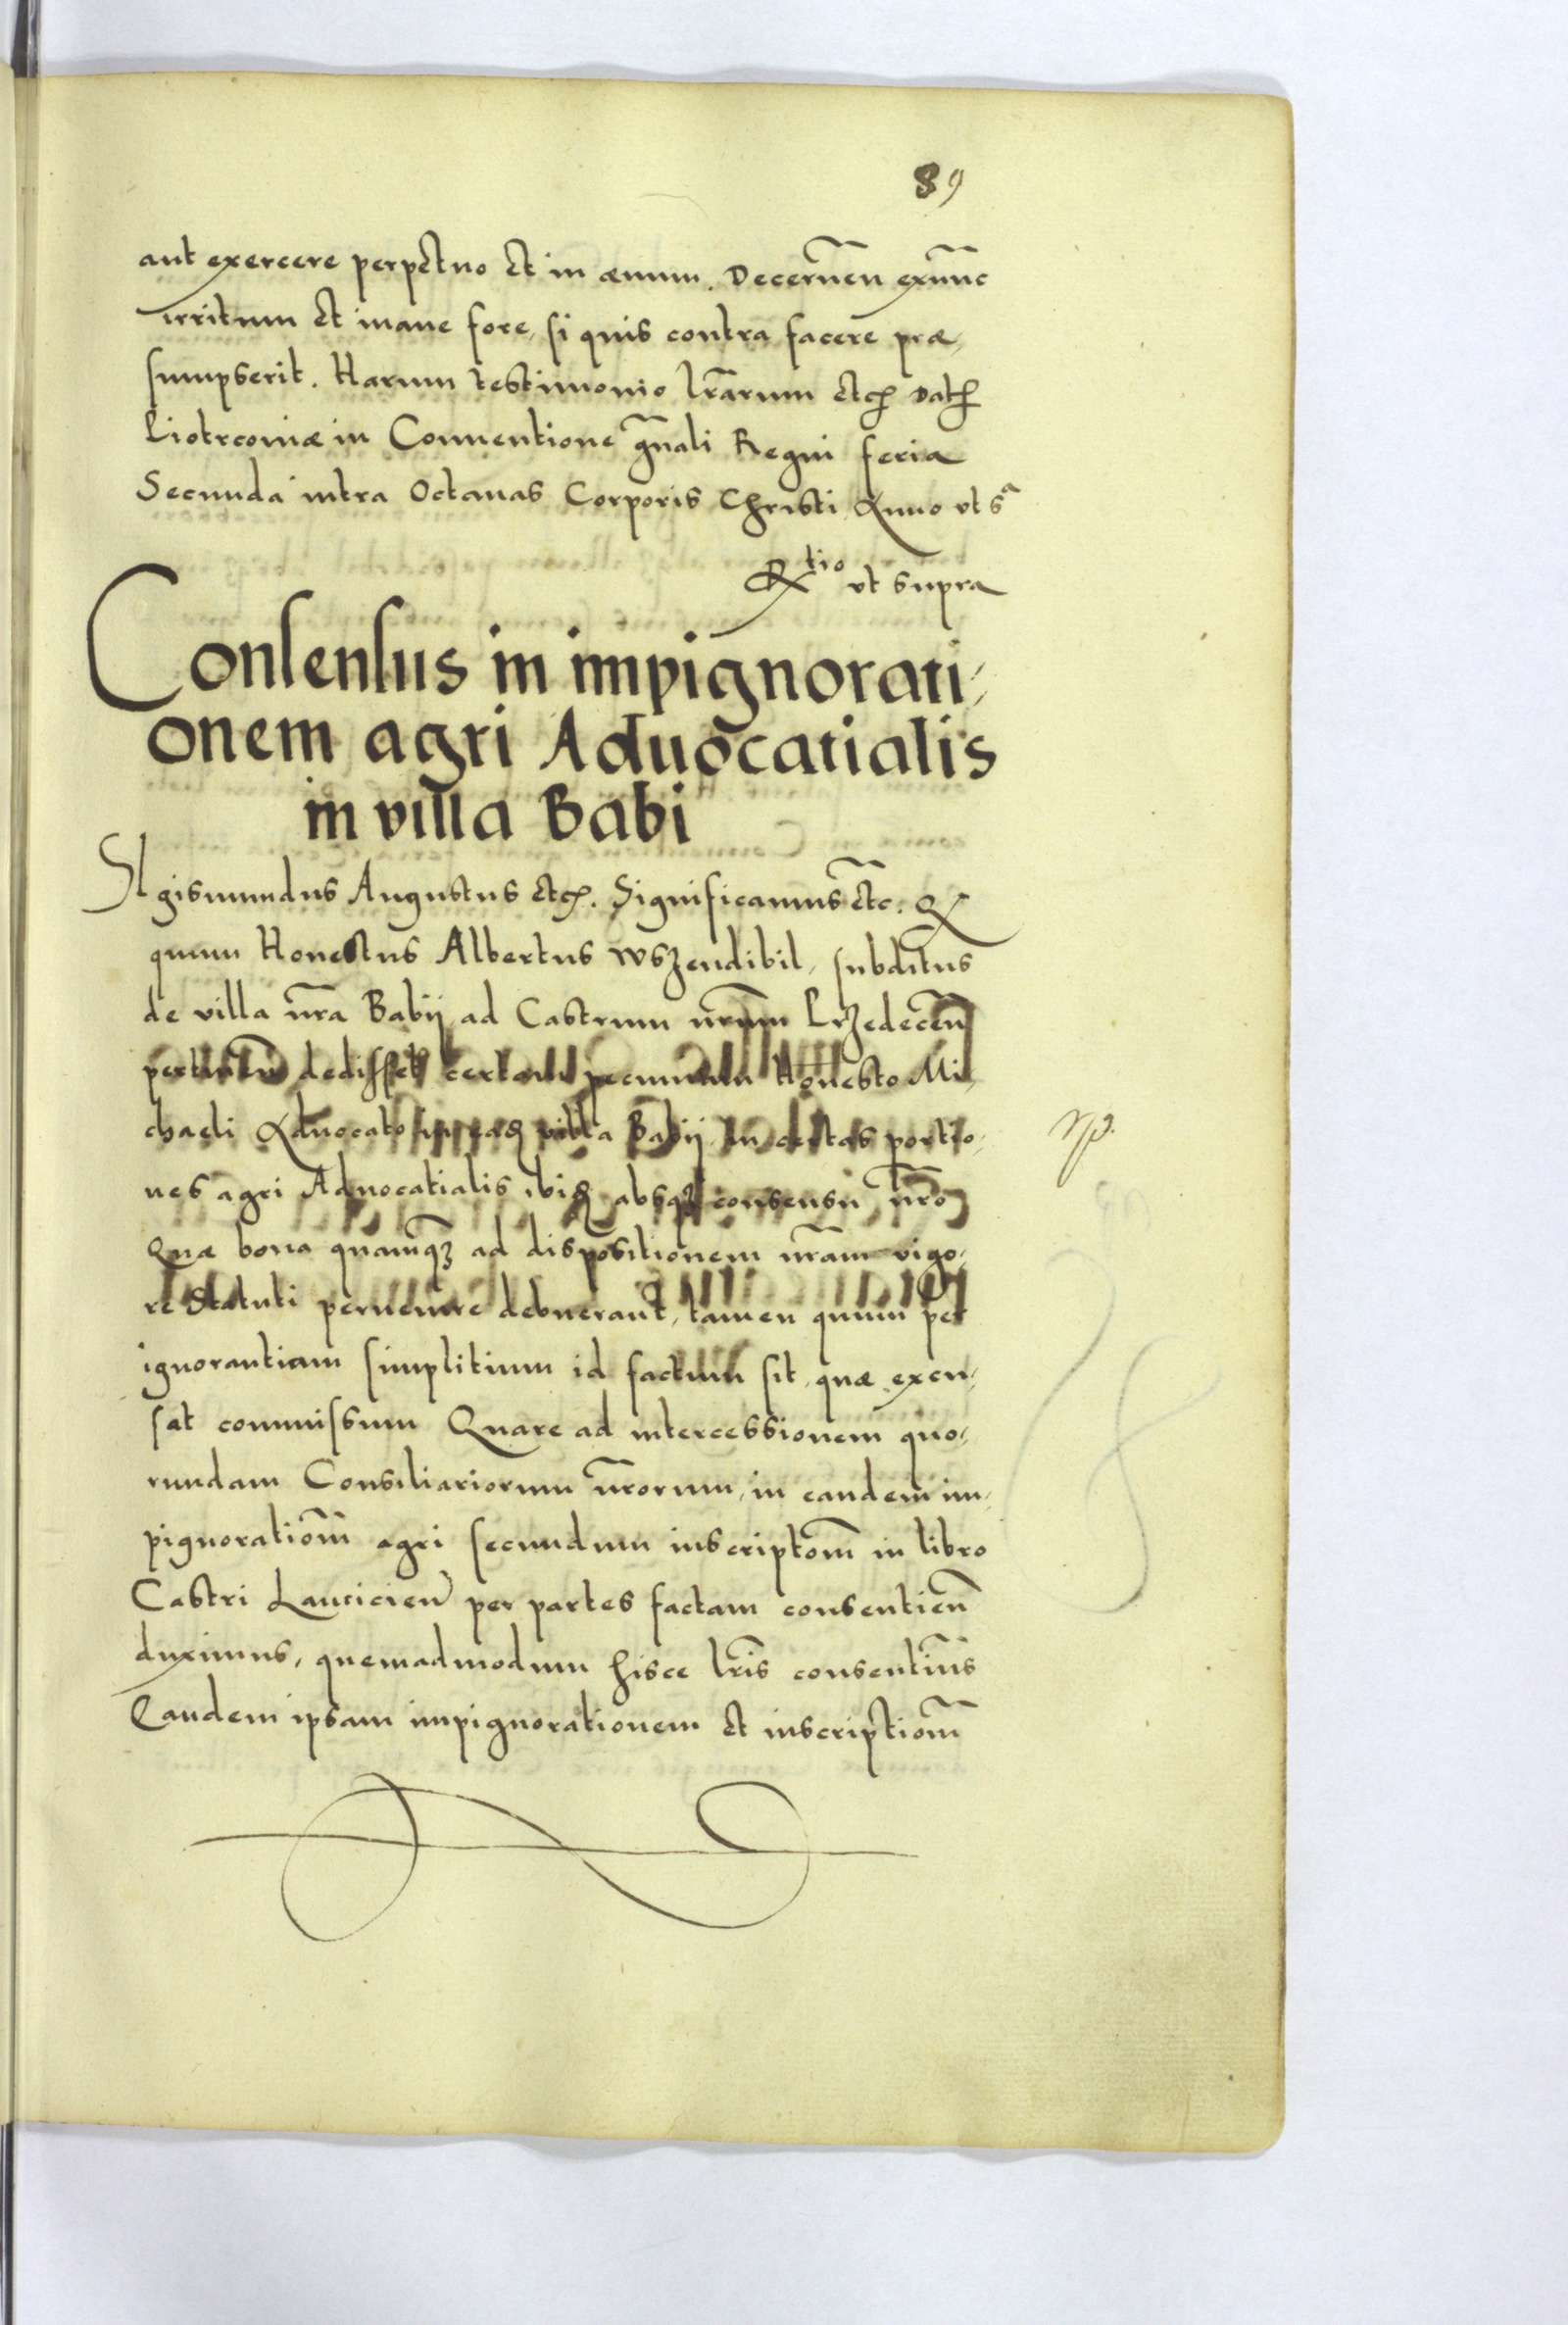 89
aut exercere perpetuo et in aeuum. Decernen̄ exnūc
irritum et inane fore, si quis contra facere præ,
sumpserit. Harum testimonio lr̄arum etc̨ Dat̨
Piotrcoviæ in Conuentione gn̄ali Regni feria
Secunda intra Octauas Corporis Christi Anno vt sᵃ
Rᵗⁱᵒ vt supra
Consensus in impignorati,
onem agri Aduocatialis
in villa Babi
SIgismundus Augustus etc̨. Significamus etc̄. Q
quum Honestus Albertus Wszendibil, subditus
de villa nr̄a Babij ad Castrum nr̄um Przedecen̄
pertinen̄ dedisset certam pecuniam Honesto Mi,
chaeli Aduocato in ead̨ villa Babij in certas portio,
nes agri Aduocatialis ibid̨ absq3 consensu nr̄o
Quæ bona quamq̄3 ad dispositionem nr̄am vigo,
re Statuti peruenire debuerant, tamen quum per
ignorantiam simplitium id factum sit, quæ excu,
sat commissum Quare ad intercessionem quo,
rundam Consiliariorum nr̄orum, in eandem im,
pignoratiom̄ agri secundum inscriptom̄ in libro
Castri Lancicien̄ per partes factam consentien̄
duximus, quemadmodum hisce lr̄is consentim̄s
Eandem ipsam impignorationem et inscriptiom̄